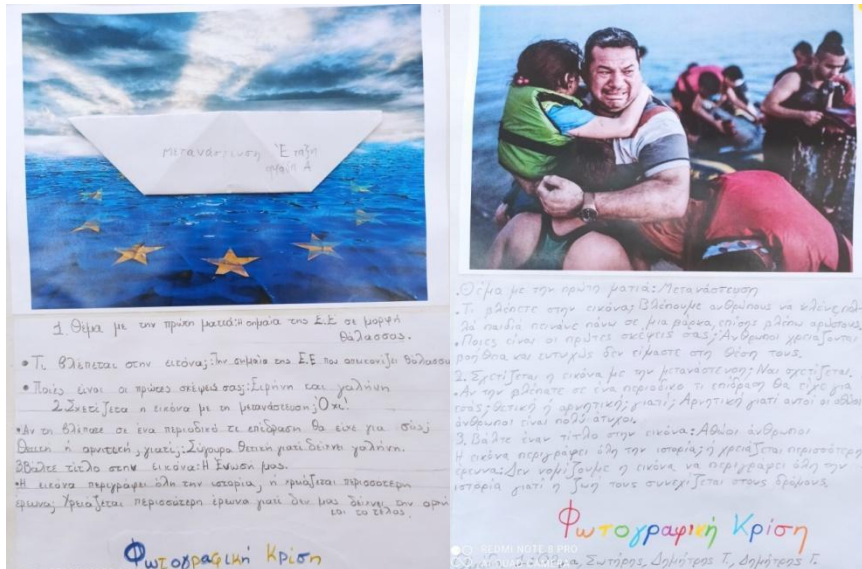 Μετανάστευση Έ ταξη
ομαδα Α
1. Θέμα με την πρώτη ματιά: Η σημαία της Ε.Ε σε μορφή
θάλασσας.
• Τι βλέπεται στην εικόνα; Την σημαία της Ε.Ε που απεικονίζει θάλασσα
• Ποιές είναι οι πρώτες σκέψεις σας; Ειρήνη και γαλήνη
2. Σχετίζεται η εικόνα με τη μετανάστευση; Όχι!
• Αν τη βλέπατε σε ένα περιοδικό τι επίδραση θα είχε για σας;
Θετική ή αρνιτική, γιατί; Σίγουρα θετική γιατί δείχνει γαλήνη.
3 Βάλτε τίτλο στην εικόνα: Η Ένωσή μας.
• Η εικόνα περιγράφει όλη την ιστορία, ή χριάζεται περισσότερη
έρευνα; Χρειάζεται περισσότερη έρευνα γιατί δεν μας δείχνει την αρχή
και το τέλος.
Φωτογραφική Κρίση
• Θέμα με την πρώτη ματιά: Μετανάστευση
• Τι βλέπετε στην εικόνα; Βλέπουμε ανθρώπους να κλένε,
παιδιά πάνω σε μια βάρκα, επίσης βλέπω αρώστους.
• Ποιες είναι οι πρώτες σκέψεις σας; Άνθρωποι χρειάζονται
βοήθεια και ευτυχώς δεν είμαστε στη θέση τους.
2. Σχετίζεται η εικόνα με την μετανάστευση; Ναι σχετίζεται.
• Αν την βλέπατε σε ένα περιοδικό τι επίδραση θα είχε για
εσάς; θετική ή αρνητική; γιατί; Αρνητική γιατί αυτοί οι αθώοι
άνθρωποι είναι πολύ άτυχοι.
3. Βάλτε έναν τίτλο στην εικόνα: Αθώοι άνθρωποι
Η εικόνα περιγράφει όλη την ιστορία; ή χρειάζεται περισσότερη
έρευνα: Δεν νομίζουμε η εικόνα να περιγράφει όλη την
ιστορία γιατί η ζωή τους συνεχίζεται στους δρόμους.
Φωτογραφική Κρίση
REDMI NOTE 8 PRO
AI QUAD CAMERA
Σωτήρης, Δημήτρης Τ., Δημήτρης Γ.